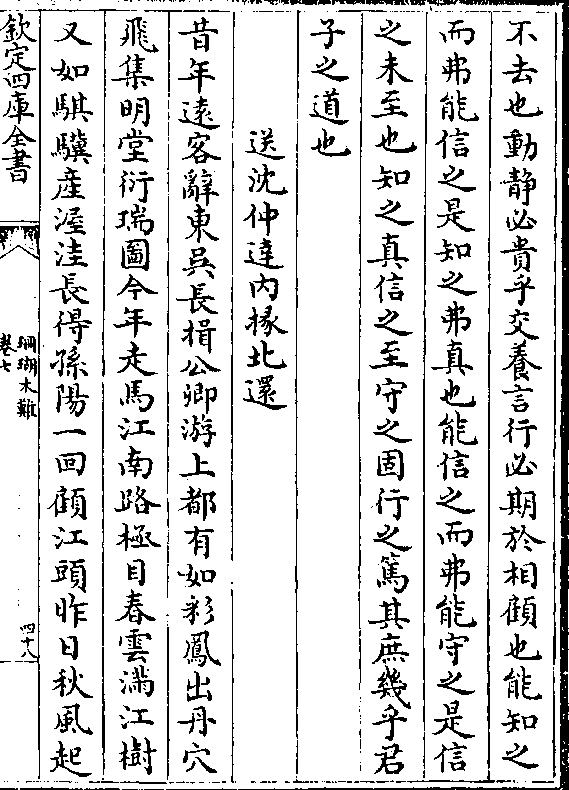 不去也動静必貴乎交養言行必期於相顧也能知之
而弗能信之是知之弗真也能信之而弗能守之是信
之未至也知之真信之至守之固行之篤其庶幾乎君
子之道也
送沈仲達内掾北還
昔年遠客辭東吳長揖公卿游上都有如彩鳳出丹穴
飛集明堂衍瑞圖今年走馬江南路極目春雲滿江樹
又如騏驥産渥洼長得孫陽一回顧江頭昨日秋風起
欽定四庫全書
珊瑚木難
卷七
四十八